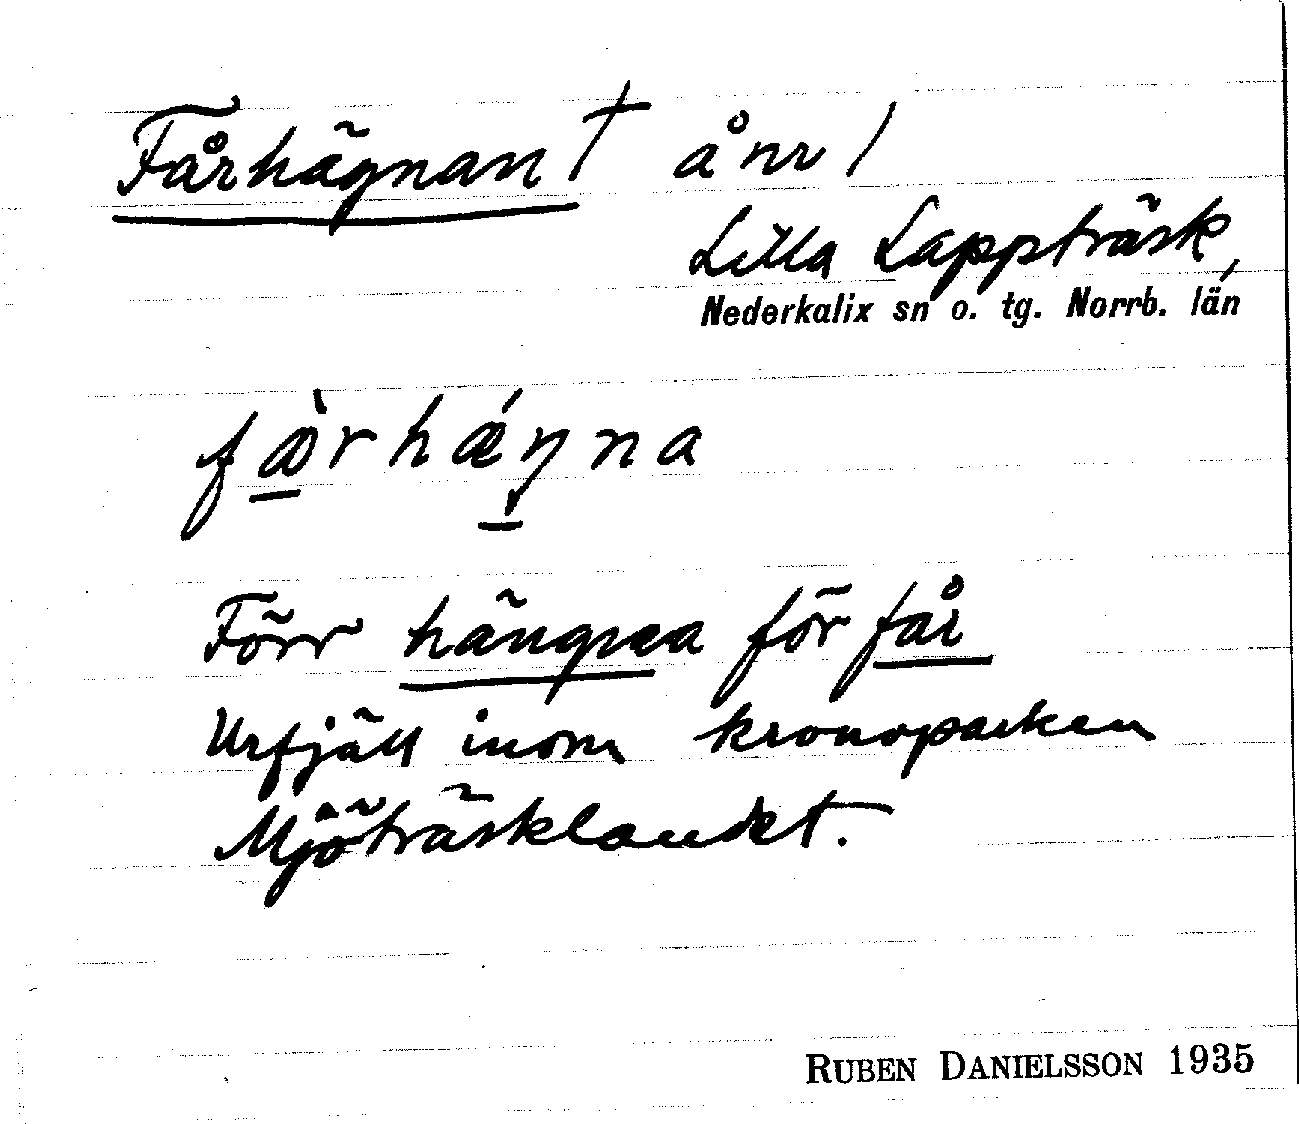 Fårhägnan † å nr 1
Lilla Lappträsk,
Nederkalix sn o. tg. Norrb. län
fæ̀rhǽŋna
Förr hängnea för får
Urfjäll inom kronoparken
Mjöträsklandet.
RUBEN DANIELSSON 1935